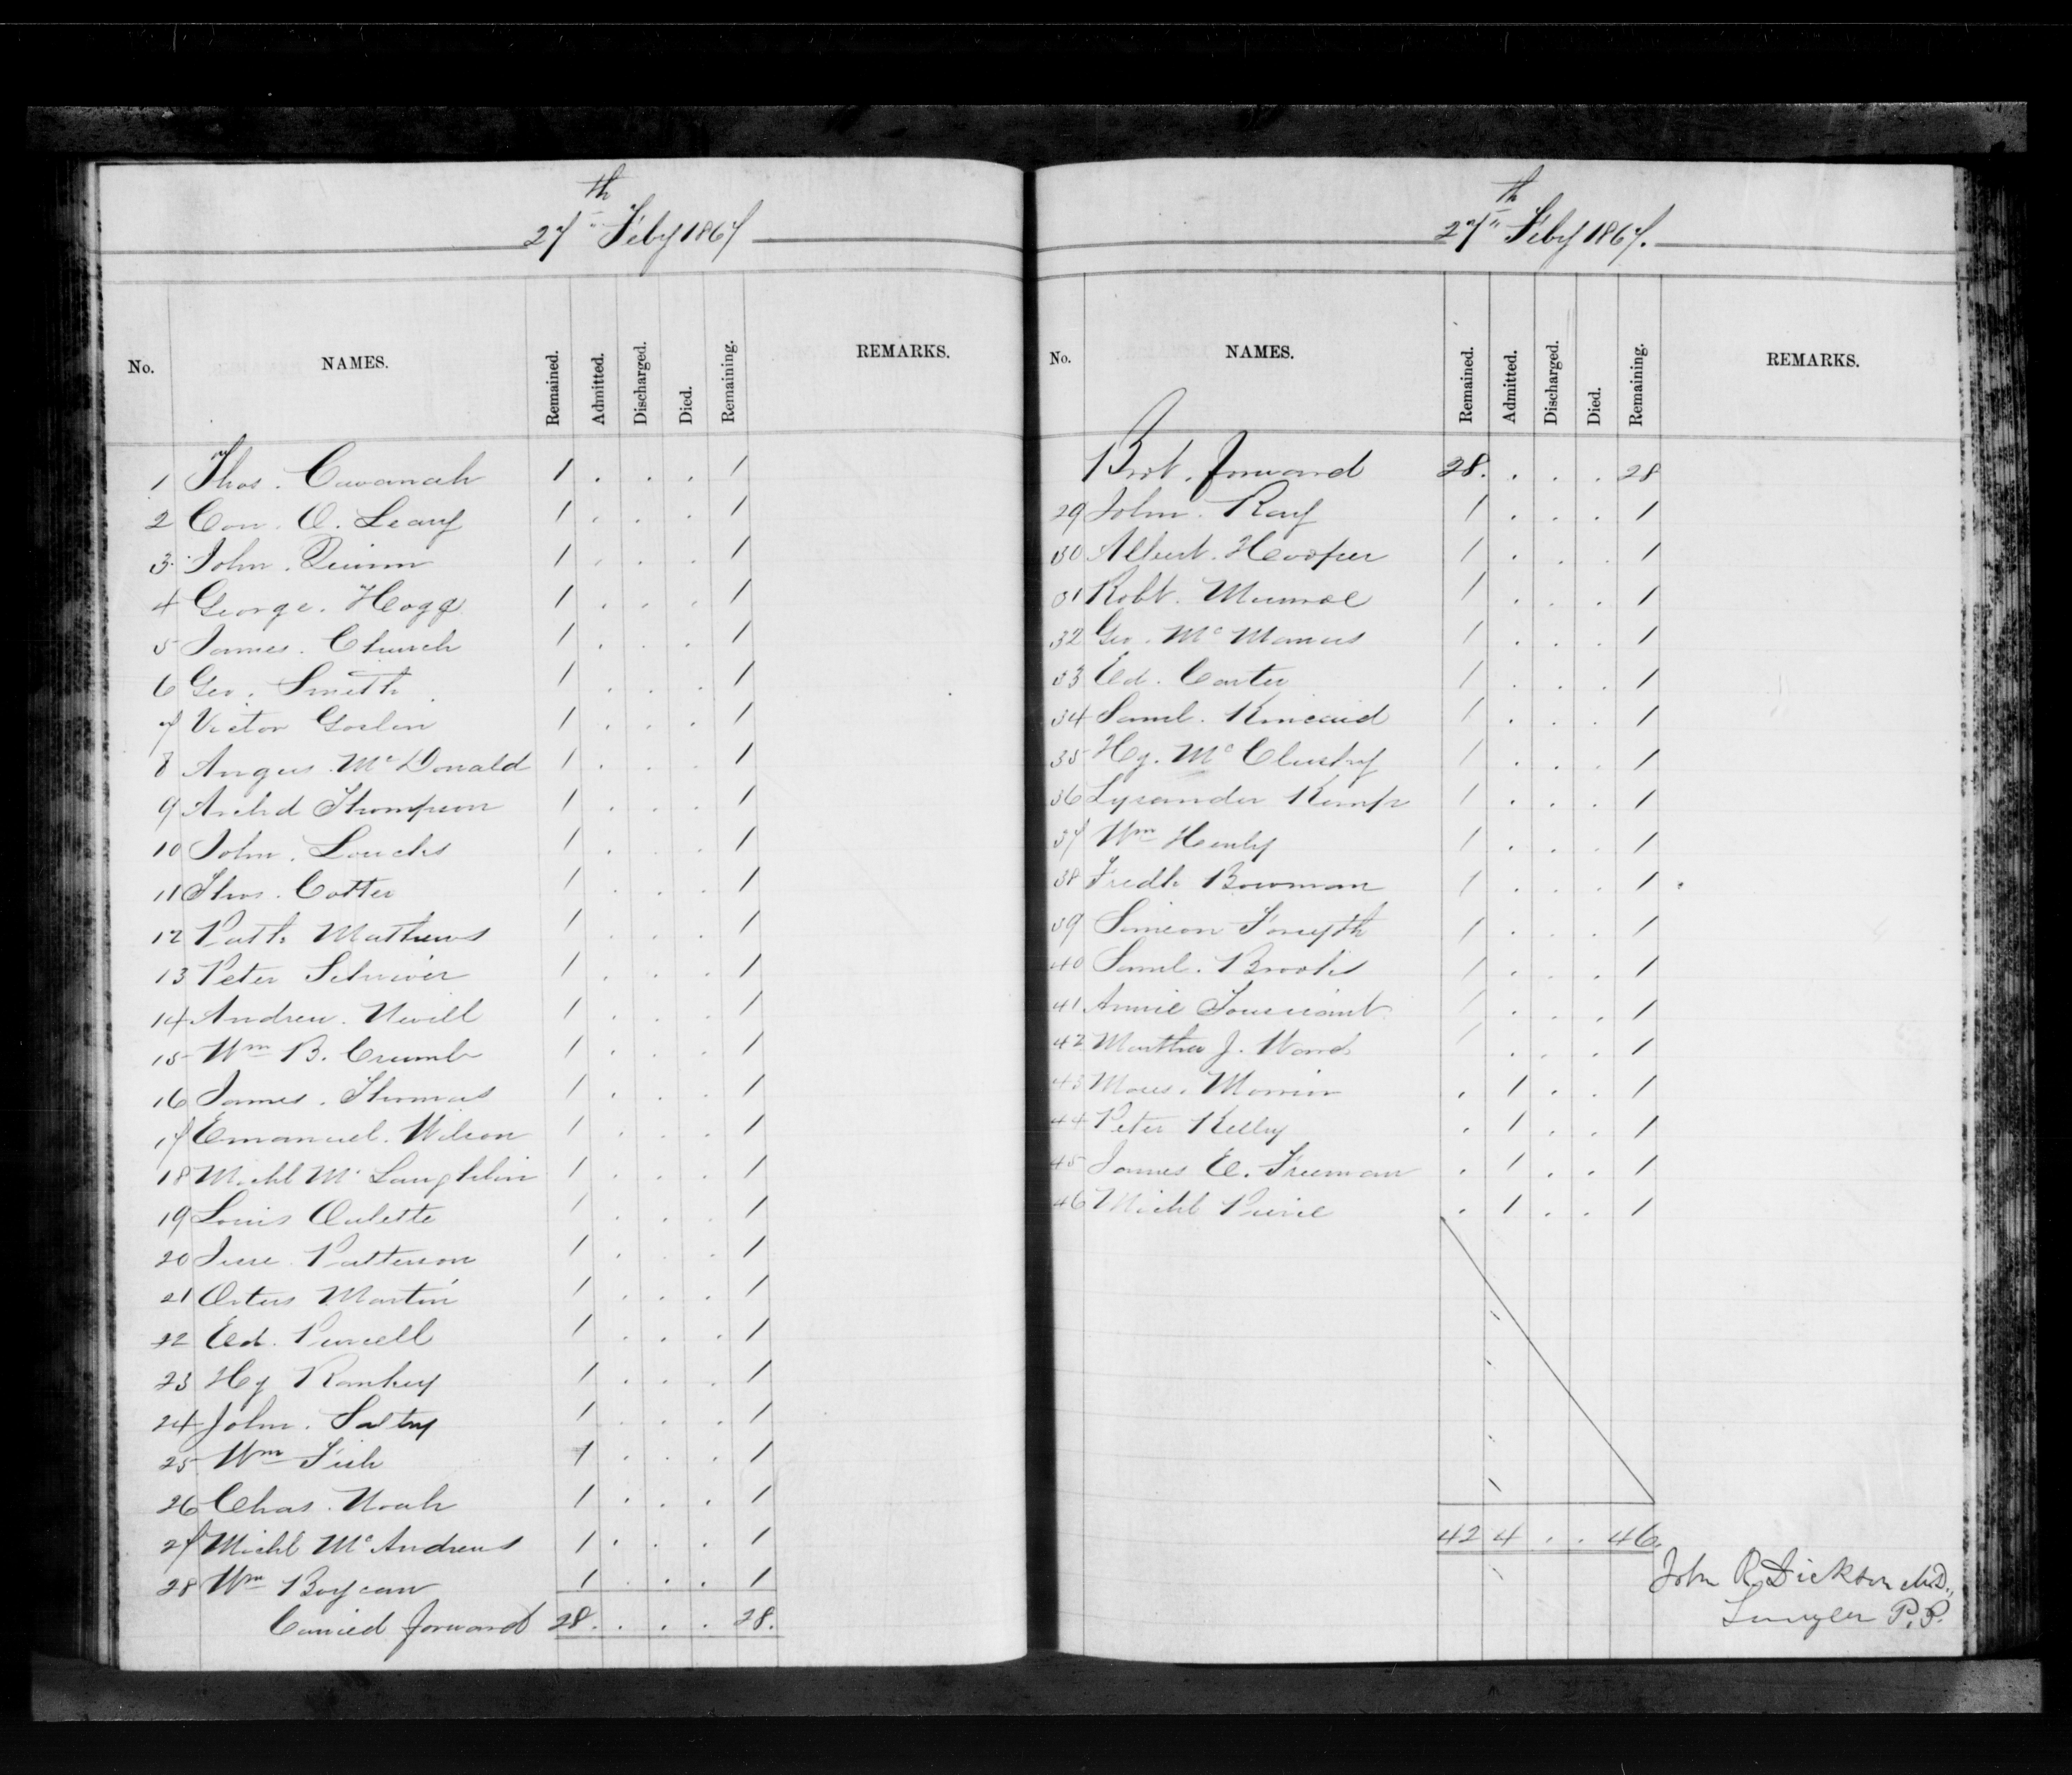 27th Feby 1867
No. NAMES. Remained. Admitted. Discharged. Died. Remaining. REMARKS.
1 Thos. Cavanach 1 . . . 1
2 Con. O. Leary 1 . . . 1
3 John. Quinn 1 . . . 1
4 George. Hogg 1 . . . 1
5 James. Church 1 . . . 1
6 Geo. Smith 1 . . . 1
7 Victor Goslin 1 . . . 1
8 Angus McDonald 1 . . . 1
9 Archd Thompson 1 . . . 1
10 John. Loucks 1 . . . 1
11 Thos. Cotter 1 . . . 1
12 Patk Mathews 1 . . . 1
13 Peter Schriver 1 . . . 1
14 Andrew. Nevill 1 . . . 1
15 Wm B. Crumb 1 . . . 1
16 James. Thomas 1 . . . 1
17 Emanuel. Wilson 1 . . . 1
18 Michl McLaughlin 1 . . . 1
19 Louis Oulette 1 . . . 1
20 Jesse Patterson 1 . . . 1
21 Martin 1 . . . 1
22 Ed. Purcell 1 . . . 1
23 Hy Rankey 1 . . . 1
24 John. Saltry 1 . . . 1
25 Wm Fish 1 . . . 1
26 Chas. Noah 1 . . . 1
27 Michl McAndrews 1 . . . 1
28 Wm Boycan 1 . . . 1
Carried forward 28 . . . 28.
27th Feby 1867.
No. NAMES. Remained. Admitted. Discharged. Died. Remaining. REMARKS.
Brot. forward 28. . . . 28
29 John. Ray 1 . . . 1
30 Albert. Hooper 1 . . . 1
31 Robt. Munroe 1 . . . 1
32 Geo. McManus 1 . . . 1
33 Ed. Carter 1 . . . 1
34 Saml. Kincaid 1 . . . 1
35 Hy. McClusky 1 . . . 1
36 Lysander Kemp 1 . . . 1
37 Wm Henly 1 . . . 1
38 Fredk Bowman 1 . . . 1
39 Simeon Forsyth 1 . . . 1
40 Saml. Brooks 1 . . . 1
41 Annie Toussiant 1 . . . 1
42 Martha J. Ward 1 . . . 1
43 Moses. Morrin . 1 . . 1
44 Peter Kelly . 1 . . 1
45 James E. Freeman . 1 . . 1
46 Michl . 1 . . 1
42 4 . . 46.
John R. Dickson M.D.,
Surgeon P.P.